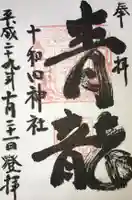 奉拝
青龍
十和田神社
平成二十九年十月二十一日登拝